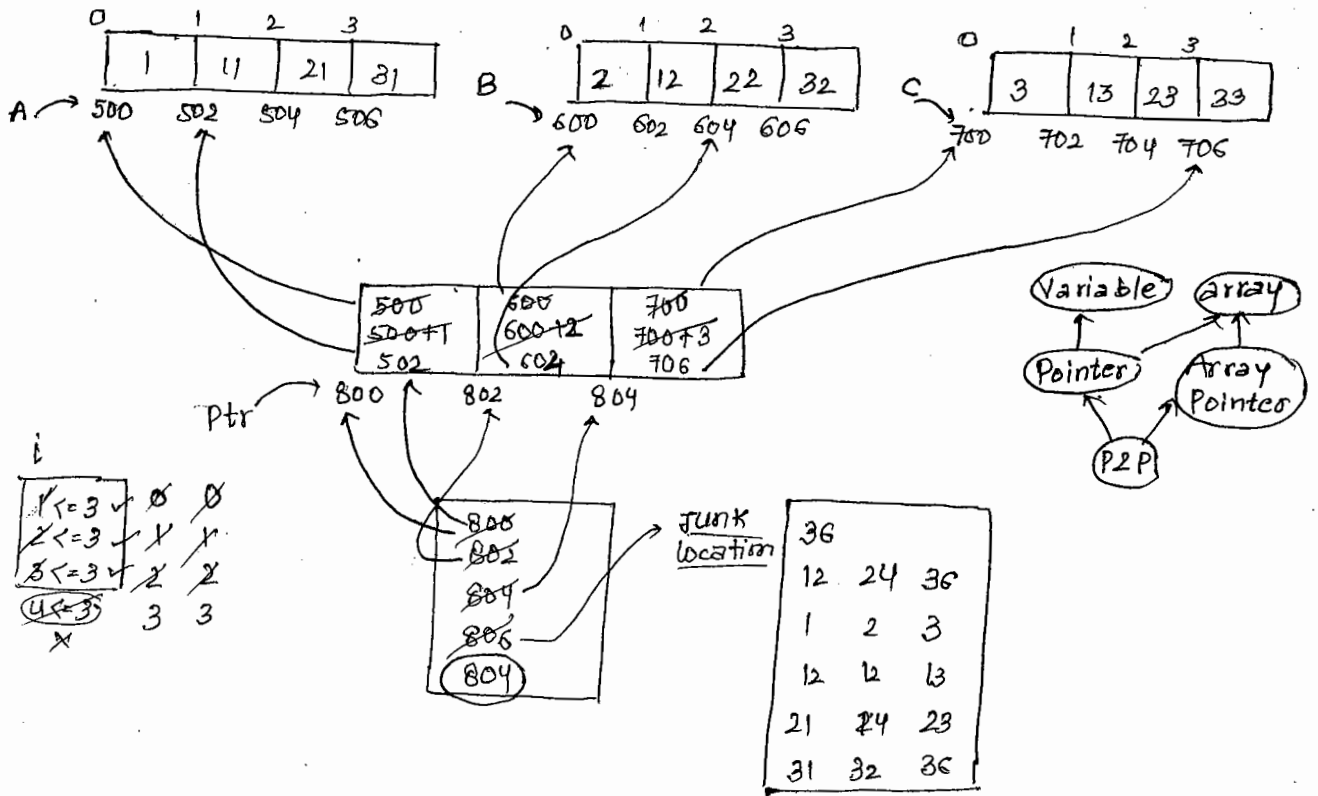 0 1 2 3
1 11 21 31
A 500 502 504 506
0 1 2 3
2 12 22 32
B 600 602 604 606
0 1 2 3
3 13 23 33
C 700 702 704 706
500 600 700
500+1 600+2 700+3
502 604 706
Ptr 800 802 804
Variable array
Pointer Array
Pointer
P2P
i
1<=3 ✓ 0 0
2<=3 ✓ 1 1
3<=3 ✓ 2 2
4<=3 3 3
x
800
802
804
806
804
Junk
location
36
12 24 36
1 2 3
12 12 13
21 24 23
31 32 36